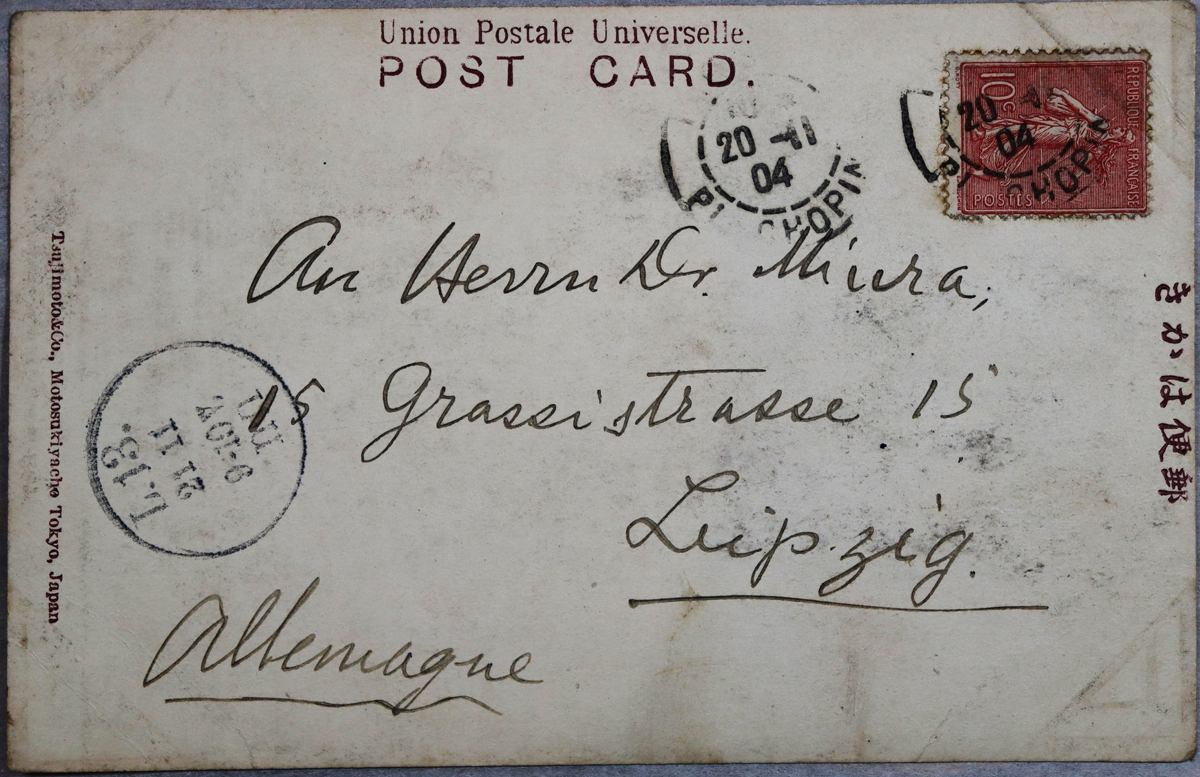 Union Postale Universelle.
POST CARD.
20 -11
04
CHOPIN
REPUBLIQUE FRANÇAISE
10c
POSTES
20
04
CHOPIN
An Herrn Dr. Miura,
15 Grassistrasse 15
Leipzig.
Allemagne
L.13.
21 11
9-10V
きかは便郵
Tsujimoto&Co., Motosukiyacho Tokyo, Japan